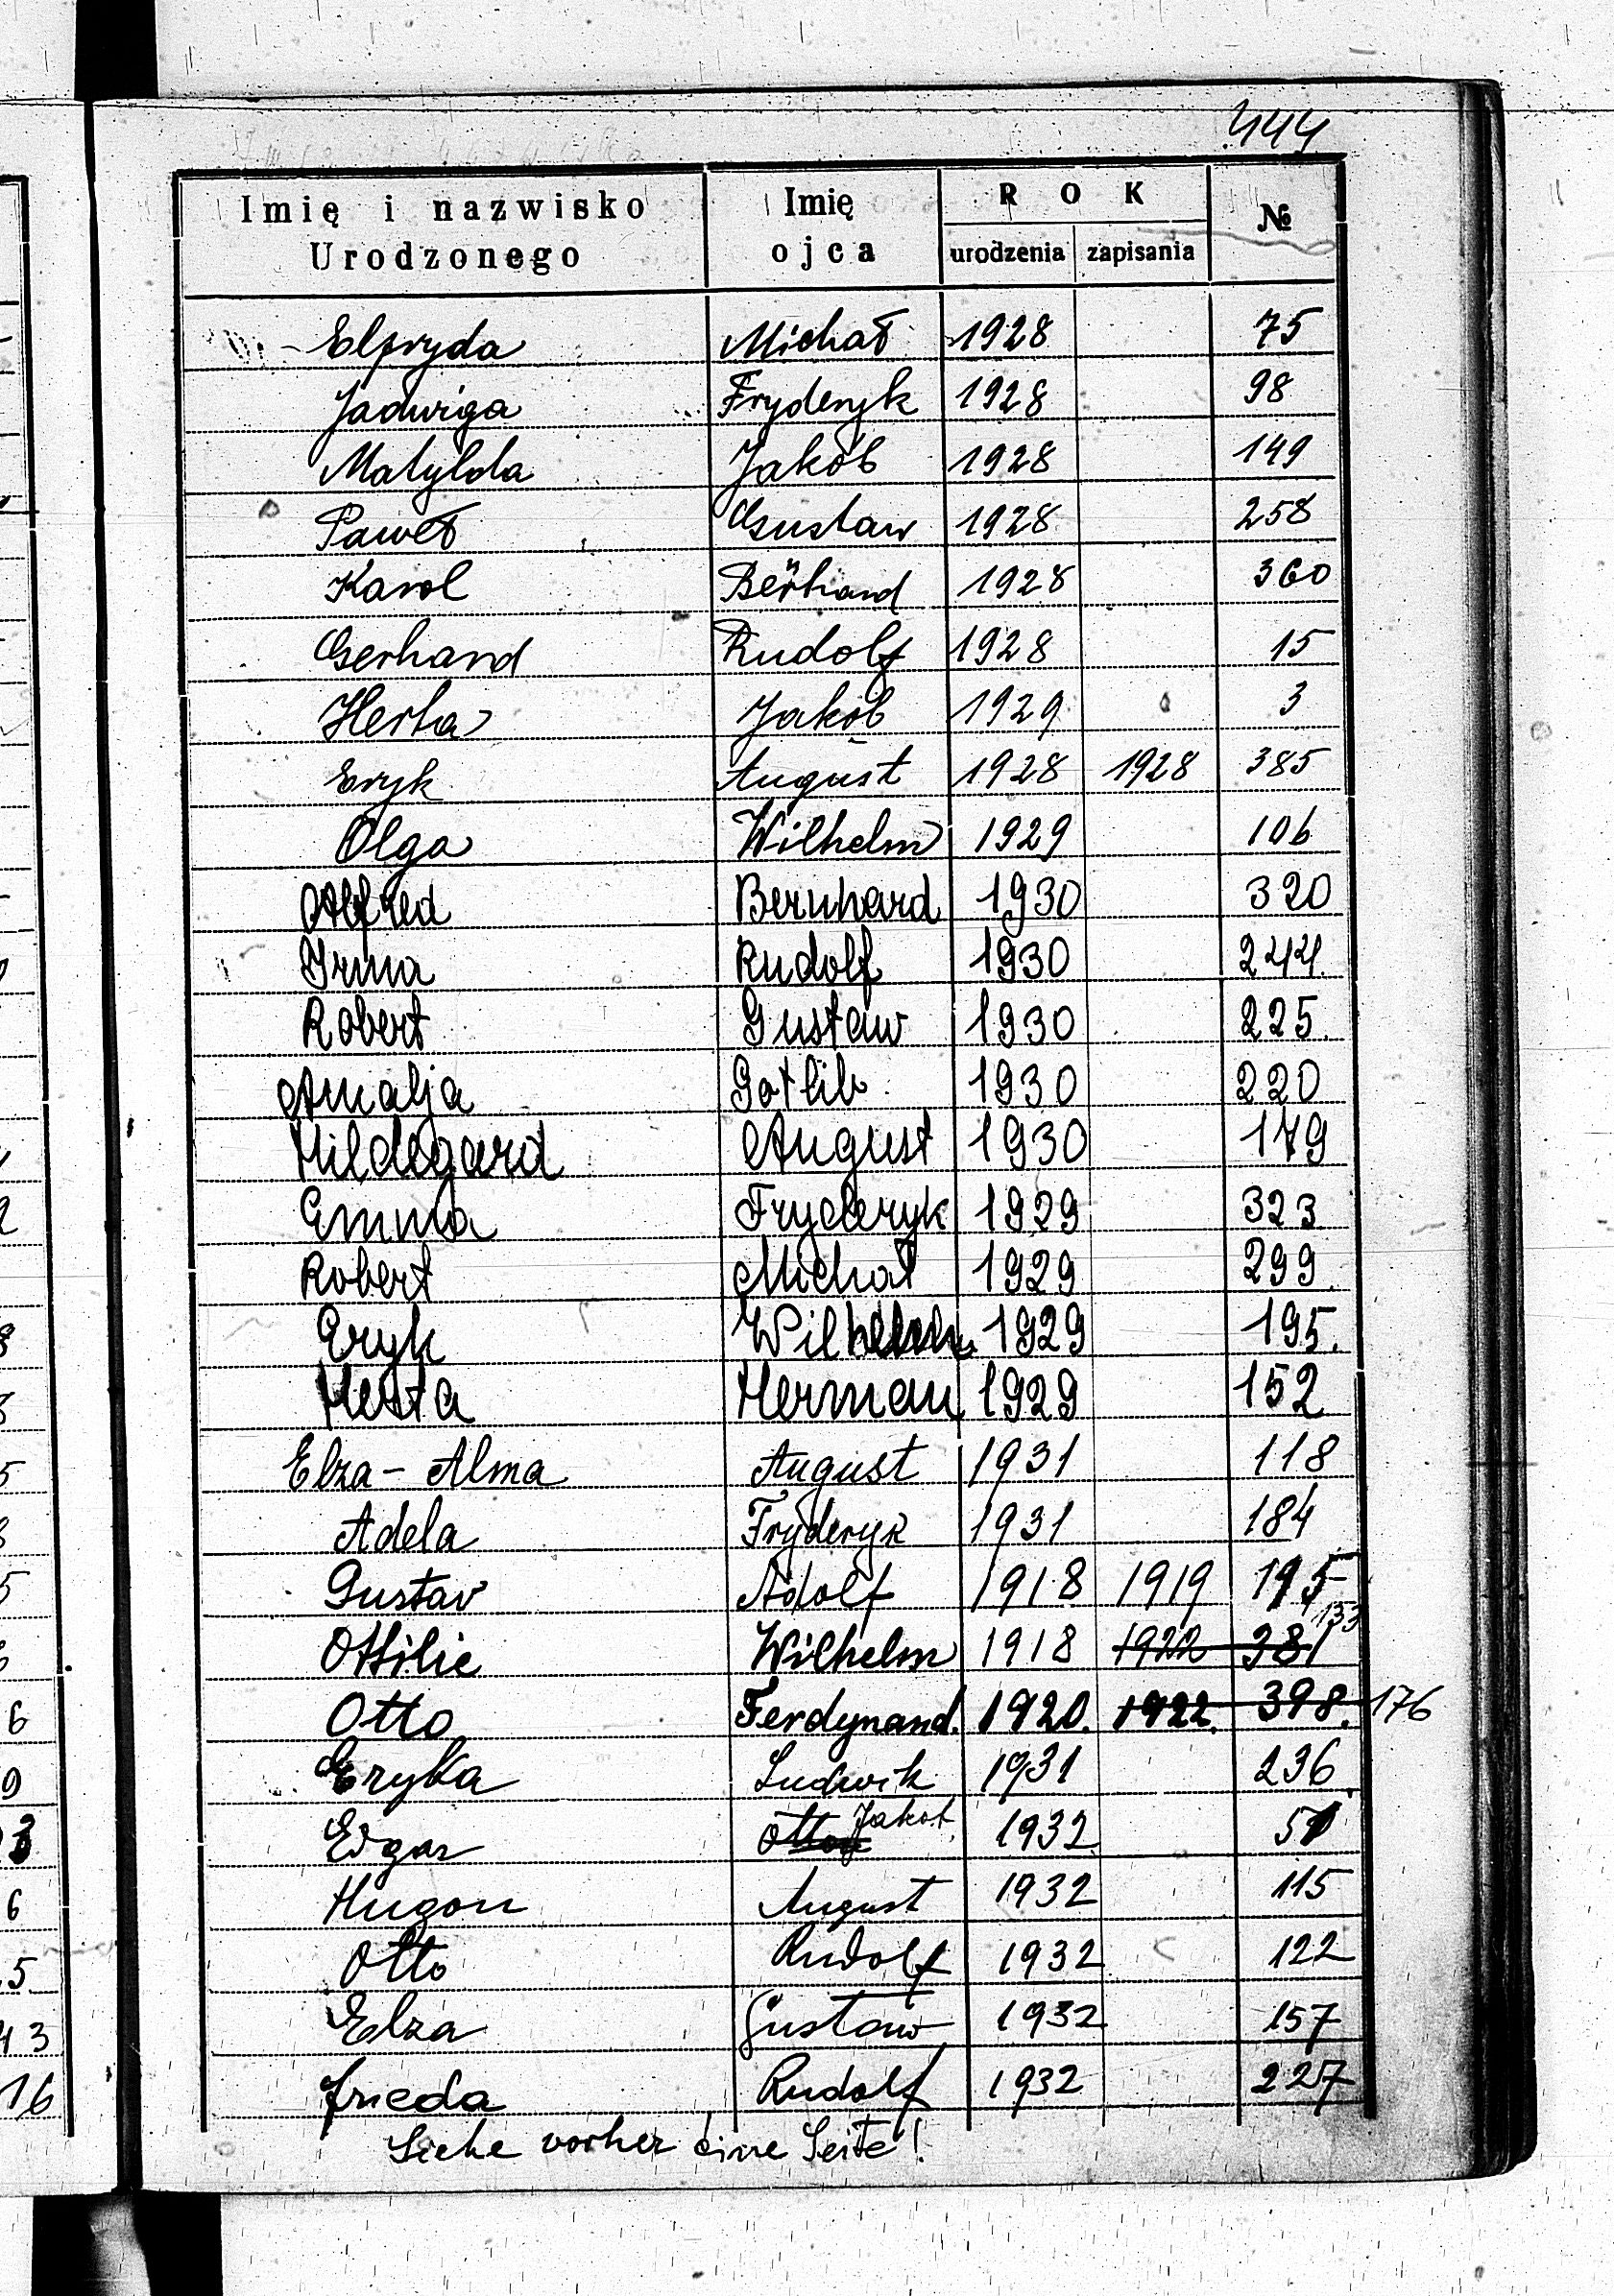 444
Imię i nazwisko Urodzonego | Imię ojca | ROK urodzenia | zapisania | №
Elfryda Michał 1928 75
Jadwiga Fryderyk 1928 98
Matylda Jakób 1928 149
Paweł Gustaw 1928 258
Karol 1928 360
Gerhard Rudolf 1928 15
Herta Jakób 1929 3
Eryk August 1928 1928 385
Olga Wilhelm 1929 106
Alfred Bernhard 1930 320
Irma Rudolf 1930 244.
Robert Gustaw 1930 225.
Amalja Gotlib 1930 220
Hildegard August 1930 179
Emma Fryderyk 1929 323
Robert Michał 1929 299.
Eryk Wilhelm 1929 195.
Herta Herman 1929 152
Elza-Alma August 1931 118
Adela Fryderyk 1931 184
Gustav Adolf 1918 1919
Ottilie Wilhelm 1918 1922 381 133
Otto Ferdynand. 1920. 1922. 398. 176
Eryka Ludwik 1931 236.
Edgar Jakob 1932
Hugon August 1932 115
Otto Rudolf 1932 122
Elza Gustaw 1932 157
Frieda Rudolf 1932 227
Siehe vorher eine Seite!